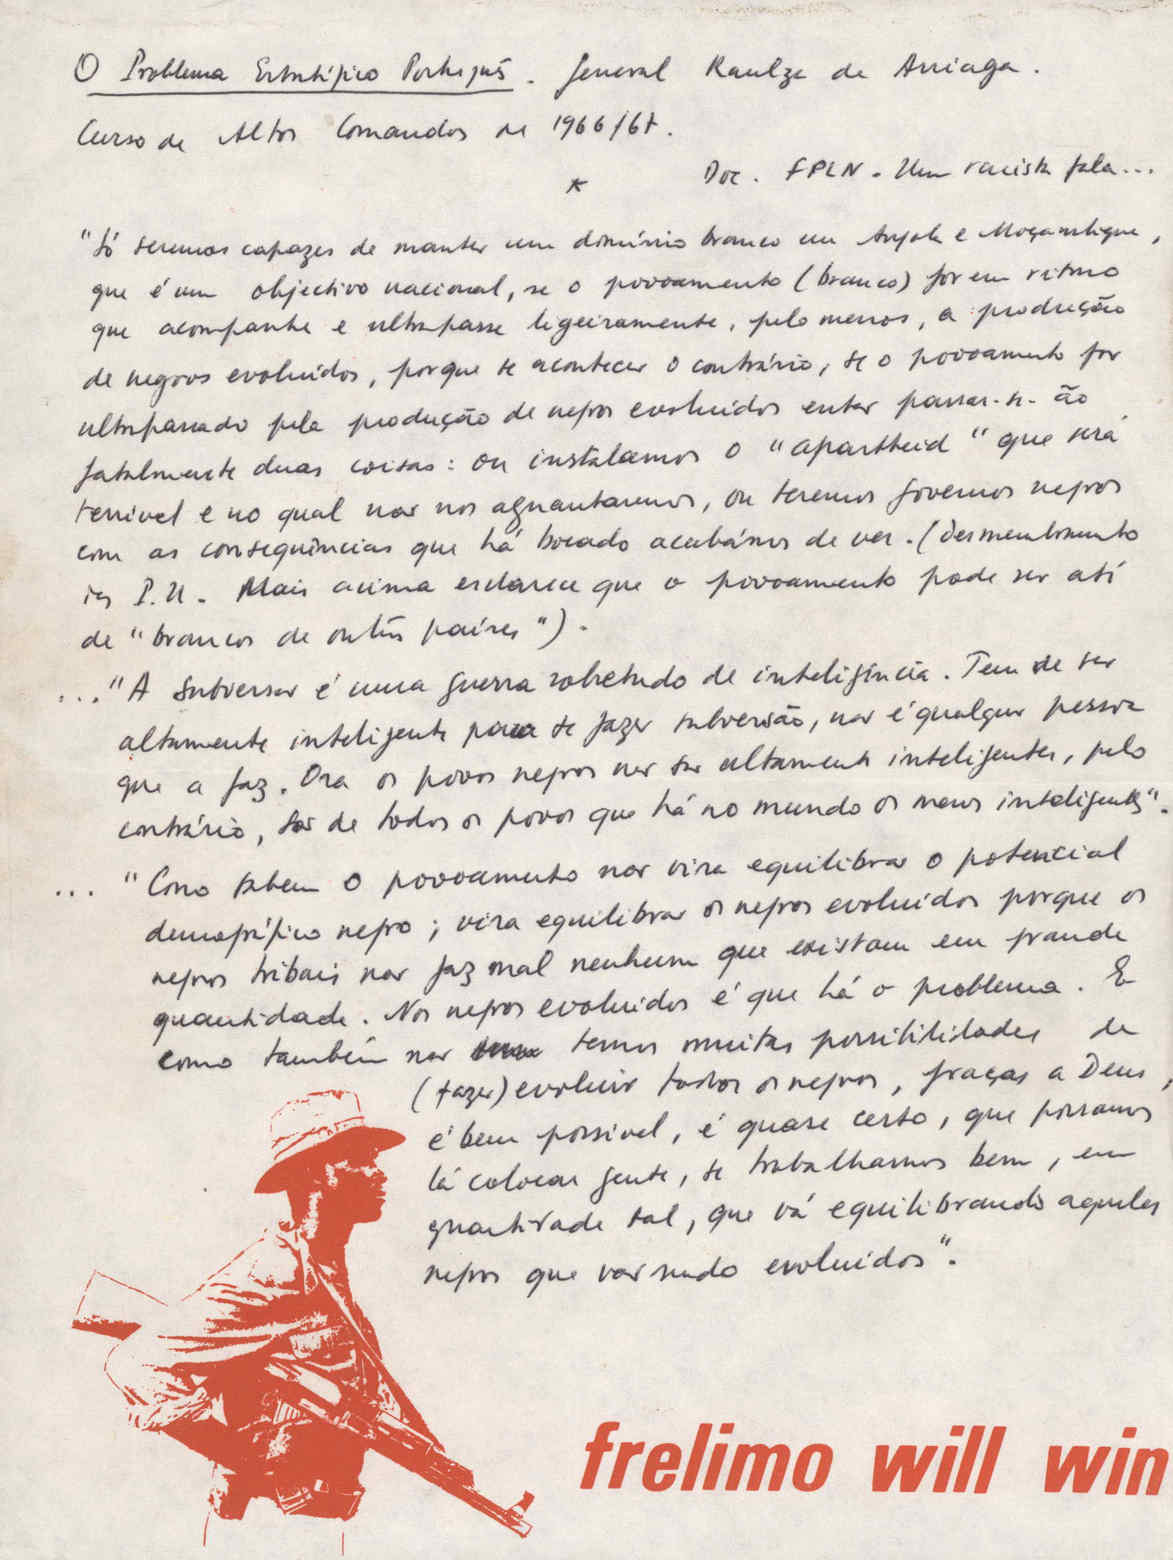 O Problema Estratégico Português. General Kaulza de Arriaga.
Curso de Altos Comandos de 1966/67.
*
Doc. FPLN. Um racista fala...
"Só seremos capazes de manter um domínio branco em Angola e Moçambique,
que é um objectivo nacional, se o povoamento (branco) for em ritmo
que acompanhe e ultrapasse ligeiramente, pelo menos, a produção
de negros evoluídos, porque se acontecer o contrário, se o povoamento for
ultrapassado pela produção de negros evoluídos então passar-se-ão
fatalmente duas coisas: ou instalamos o "apartheid" que será
terrível e no qual não nos aguentaremos, ou teremos governos negros
com as consequências que há bocado acabámos de ver. (Desmembramento
das P.U. Mais acima esclarece que o povoamento pode ser até
de "brancos de outros países").
... "A Subversão é uma guerra sobretudo de inteligência. Tem de ser
altamente inteligente para se fazer subversão, não é qualquer pessoa
que a faz. Ora os povos negros não são altamente inteligentes, pelo
contrário, são de todos os povos que há no mundo os menos inteligentes".
... "Como sabem o povoamento não visa equilibrar o potencial
demográfico negro; visa equilibrar os negros evoluídos porque os
negros tribais não faz mal nenhum que existam em grande
quantidade. Nos negros evoluídos é que há o problema. E
como também não temos muitas possibilidades de
(fazer) evoluir todos os negros, graças a Deus,
é bem possível, é quase certo, que possamos
lá colocar gente, se trabalharmos bem, em
quantidade tal, que vá equilibrando aqueles
negros que vão sendo evoluídos".
frelimo will win